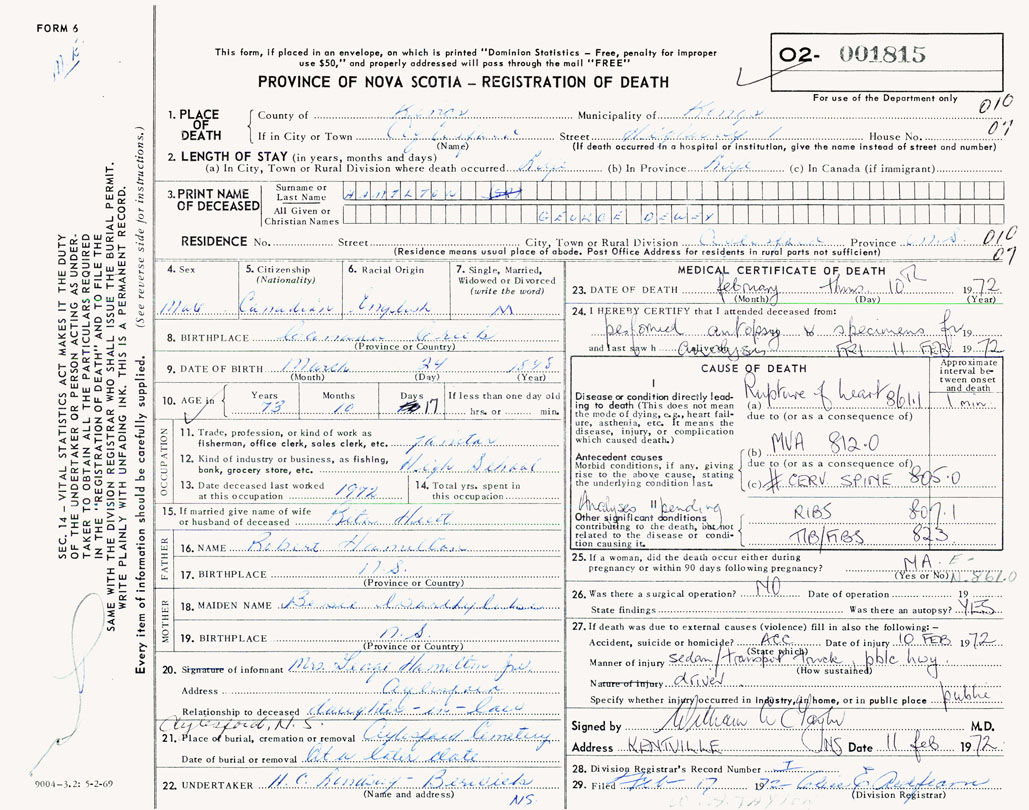 FORM 6
M E
This form, if placed in an envelope, on which is printed "Dominion Statistics – Free, penalty for improper
use $50," and properly addressed will pass through the mail "FREE"
PROVINCE OF NOVA SCOTIA – REGISTRATION OF DEATH
02- 001815
For use of the Department only
010
07
SEC. 14 – VITAL STATISTICS ACT MAKES IT THE DUTY
OF THE UNDERTAKER OR PERSON ACTING AS UNDER-
TAKER TO OBTAIN ALL THE PARTICULARS REQUIRED
IN THE "REGISTRATION OF DEATH" AND TO FILE THE
SAME WITH THE DIVISION REGISTRAR WHO SHALL ISSUE THE BURIAL PERMIT.
WRITE PLAINLY WITH UNFADING INK. THIS IS A PERMANENT RECORD.
Every item of information should be carefully supplied. (See reverse side for instructions.)
1. PLACE OF DEATH
County of Kings Municipality of Kings
If in City or Town Aylesford Street Highway 1 House No.
(Name) (If death occurred in a hospital or institution, give the name instead of street and number)
2. LENGTH OF STAY (in years, months and days)
(a) In City, Town or Rural Division where death occurred Life (b) In Province Life (c) In Canada (if immigrant)
3. PRINT NAME OF DECEASED
Surname or Last Name HAMILTON
All Given or Christian Names GEORGE DEWEY
RESIDENCE No. Street City, Town or Rural Division Aylesford Province N.S. 010
(Residence means usual place of abode. Post Office Address for residents in rural parts not sufficient) 07
4. Sex Male
5. Citizenship (Nationality) Canadian
6. Racial Origin English
7. Single, Married, Widowed or Divorced (write the word) M
8. BIRTHPLACE
(Province or Country)
9. DATE OF BIRTH March 24 1898
(Month) (Day) (Year)
10. AGE in Years 73 Months 10 Days 17 If less than one day old hrs. or min.
OCCUPATION
11. Trade, profession, or kind of work as
fisherman, office clerk, sales clerk, etc. Janitor
12. Kind of industry or business, as fishing,
bank, grocery store, etc. High School
13. Date deceased last worked
at this occupation 1972
14. Total yrs. spent in
this occupation
15. If married give name of wife
or husband of deceased Rita
FATHER
16. NAME Robert Hamilton
17. BIRTHPLACE N.S.
(Province or Country)
MOTHER
18. MAIDEN NAME
19. BIRTHPLACE N.S.
(Province or Country)
20. Signature of informant Mrs. Hamilton
Address Aylesford
Relationship to deceased daughter-in-law
Aylesford, N.S.
21. Place of burial, cremation or removal Aylesford Cemetery
Date of burial or removal At a later date
22. UNDERTAKER H. C. Berwick
(Name and address) NS.
MEDICAL CERTIFICATE OF DEATH
23. DATE OF DEATH february thurs. 10th 1972
(Month) (Day) (Year)
24. I HEREBY CERTIFY that I attended deceased from:
performed autopsy & specimens for 19
and last saw h alive on analysis FRI 11 FEB 1972
CAUSE OF DEATH
Approximate interval between onset and death
I
Disease or condition directly lead-
ing to death (This does not mean
the mode of dying, e.g., heart fail-
ure, asthenia, etc. It means the
disease, injury, or complication
which caused death.)
(a) Rupture of heart 861.1 1 min.
due to (or as a consequence of)
Antecedent causes
Morbid conditions, if any, giving
rise to the above cause, stating
the underlying condition last.
(b) MVA 812.0
due to (or as a consequence of)
(c) # CERV SPINE 805.0
Analyses pending
II
Other significant conditions
contributing to the death, but not
related to the disease or condi-
tion causing it.
RIBS 807.1
TIB/FIBS 823
25. If a woman, did the death occur either during
pregnancy or within 90 days following pregnancy? NA. E-
(Yes or No) N. 861.0
26. Was there a surgical operation? NO Date of operation 19
State findings Was there an autopsy? YES
27. If death was due to external causes (violence) fill in also the following:–
Accident, suicide or homicide? ACC. Date of injury 10 FEB 1972
(State which)
Manner of injury sedan/transport truck, pblc hwy.
(How sustained)
Nature of injury driver
Specify whether injury occurred in Industry, in home, or in public place public
Signed by William W Taylor M.D.
Address KENTVILLE NS Date 11 feb 1972
28. Division Registrar's Record Number 1
29. Filed Feb 17 1972
(Division Registrar)
9004-3.2: 5-2-69